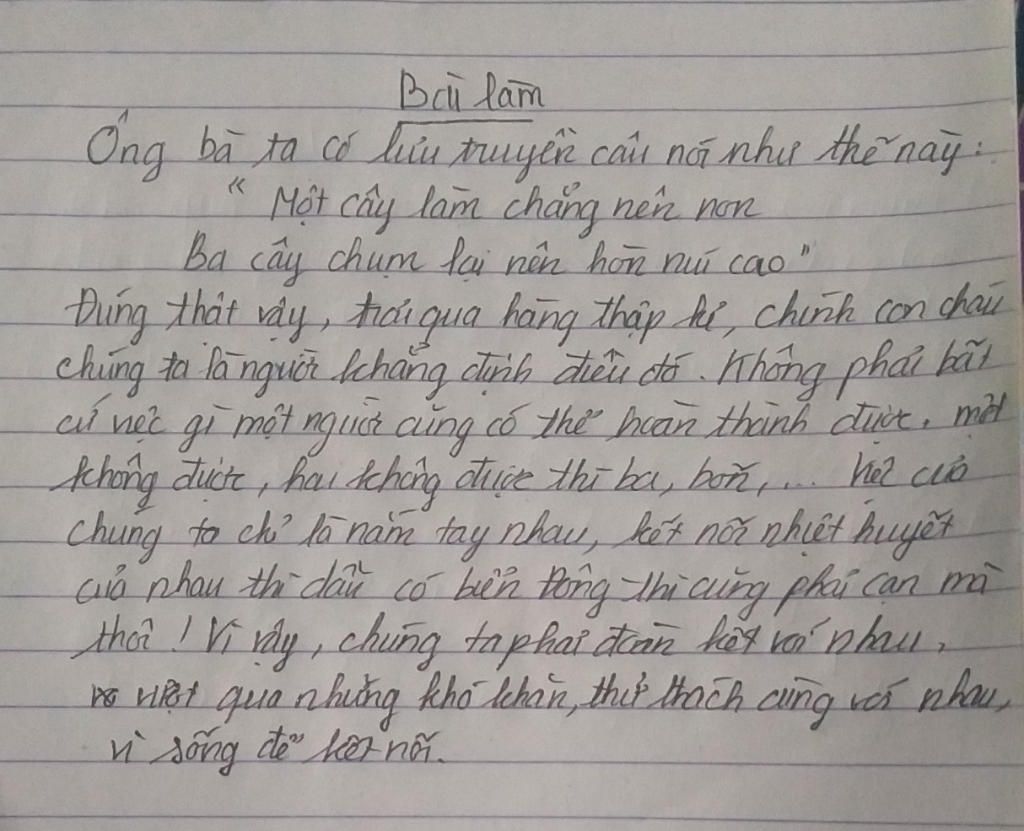 Bài làm
Ông bà ta có lưu truyền câu nói như thế này:
"Một cây làm chẳng nên non
Ba cây chụm lại nên hòn núi cao"
Đúng thật vậy, trải qua hàng thập kỉ, chính con cháu
chúng ta là người khẳng định điều đó. Không phải bất
cứ việc gì một người cũng có thể hoàn thành được, một
không được, hai không được thì ba, bốn,... Việc của
chúng ta chỉ là nắm tay nhau, kết nối nhiệt huyết
của nhau thì dẫu có biển Đông thì cũng phải cạn mà
thôi! Vì vậy, chúng ta phải đoàn kết với nhau,
vượt qua những khó khăn, thử thách cùng với nhau,
vì sống để kết nối.